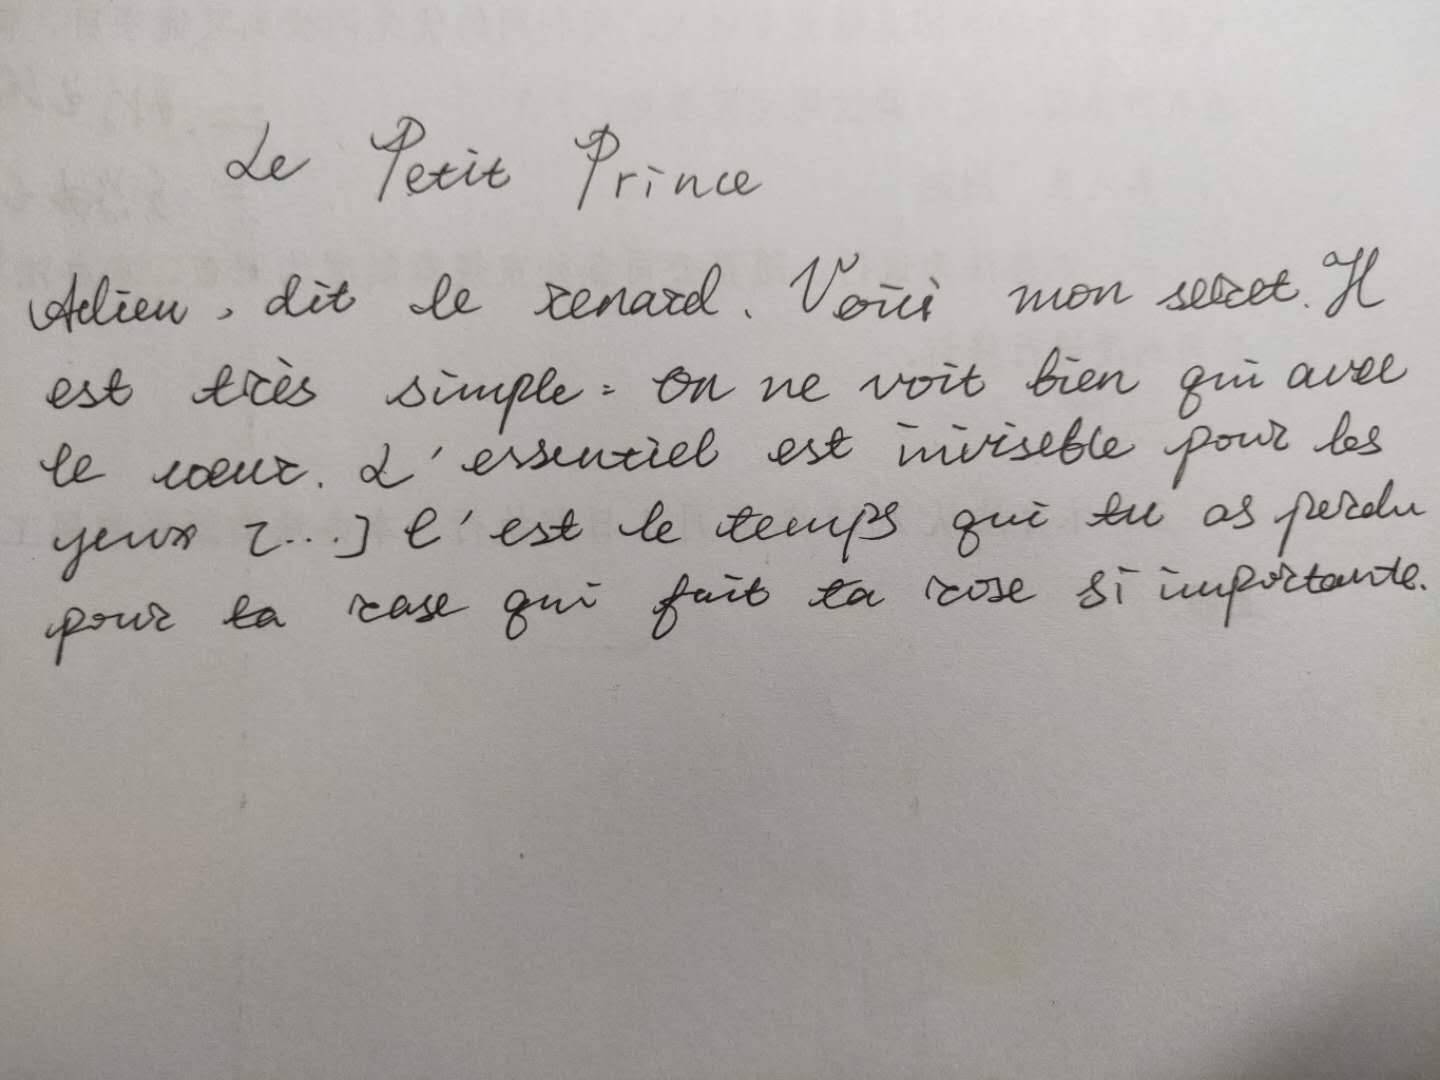 Le Petit Prince
Adieu, dit le renard. Voici mon secret. Il
est très simple: On ne voit bien qui avec
le cœur. L'essentiel est inviseble pour les
yeux [...] C'est le temps qui tu as perdu
pour ta rase qui fait ta rose si importante.